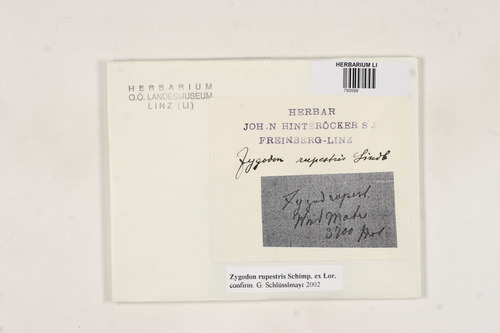 HERBARIUM LI
793599
HERBARIUM
O.Ö. LANDESMUSEUM
LINZ (LI)
HERBAR
JOH.N HINTERÖCKER S J
FREINBERG-LINZ
Zygodon rupestris Lindb
Zygod rupest.
3700
Zygodon rupestris Schimp. ex Lor.
confirm. G. Schlüsslmayr 2002